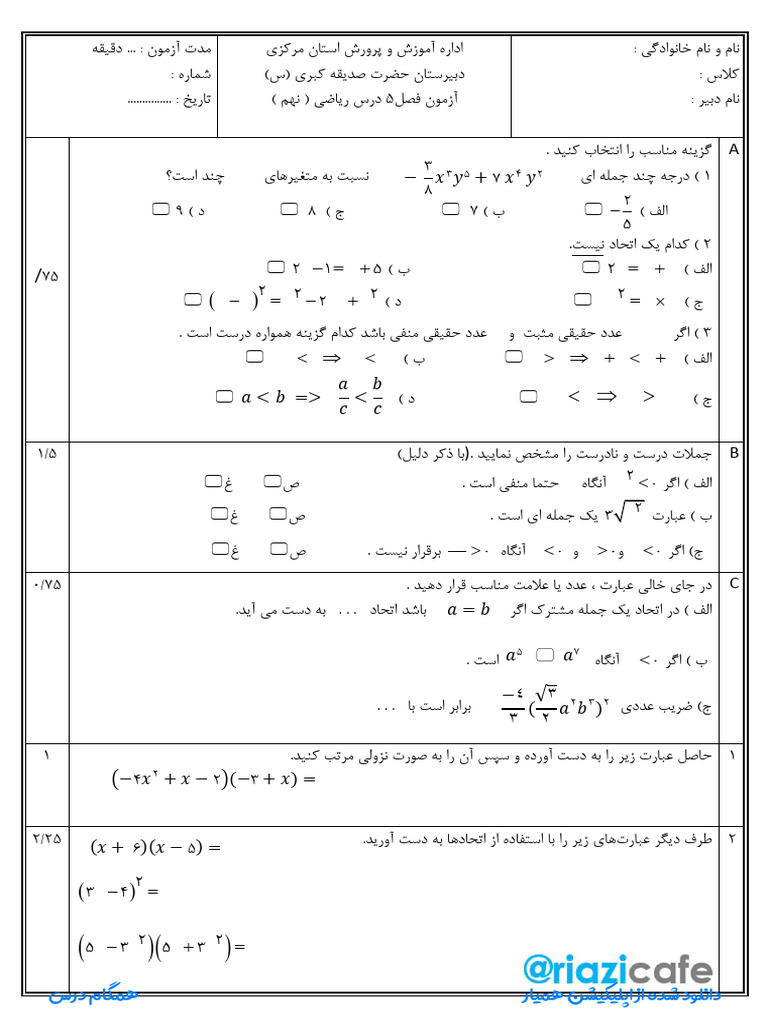 نام و نام خانوادگی :
کلاس :
نام دبیر :
اداره آموزش و پرورش استان مرکزی
دبیرستان حضرت صدیقه کبری (س)
آزمون فصل۵ درس ریاضی ( نهم )
مدت آزمون : ... دقیقه
شماره :
تاریخ : ...............
A
گزینه مناسب را انتخاب کنید .
۱ ) درجه چند جمله ای −۳/۸ x^۳y^۵ + ۷ x^۴ y^۲ نسبت به متغیرهای چند است؟
الف ) −۲/۵ ب ) ۷ ج ) ۸ د ) ۹
۲ ) کدام یک اتحاد نیست.
الف ) + = ۲ ب ) ۵+ =۱− ۲
ج ) × = ۲ د ) ( − )^۲ = ۲ −۲ + ۲
۳ ) اگر عدد حقیقی مثبت و عدد حقیقی منفی باشد کدام گزینه همواره درست است .
الف ) > ⇒ + < + ب ) < ⇒ <
ج ) < ⇒ > د ) a < b => a/c < b/c
/۷۵
B
جملات درست و نادرست را مشخص نمایید .(با ذکر دلیل)
الف ) اگر ۰> ۲ آنگاه حتما منفی است . ص غ
ب ) عبارت ۳√۲ یک جمله ای است . ص غ
ج) اگر ۰> و۰< و ۰> آنگاه ۰< — برقرار نیست . ص غ
۱/۵
C
در جای خالی عبارت ، عدد یا علامت مناسب قرار دهید .
الف ) در اتحاد یک جمله مشترک اگر a = b باشد اتحاد ... به دست می آید.
ب ) اگر ۰> آنگاه a^۵ a^۷ است .
ج) ضریب عددی −۴/۳ (√۳/۲ a^۲b^۳)^۲ برابر است با ...
۰/۷۵
۱
حاصل عبارت زیر را به دست آورده و سپس آن را به صورت نزولی مرتب کنید.
(−۴x^۲ + x − ۲)(−۳ + x) =
۱
۲
طرف دیگر عبارت‌های زیر را با استفاده از اتحادها به دست آورید.
(x + ۶)(x − ۵) =
(۳ −۴)^۲ =
(۵ −۳ ^۲)(۵ +۳ ^۲) =
۲/۲۵
@riazicafe
دانلود شده از اپلیکیشن همیار
همگام درس